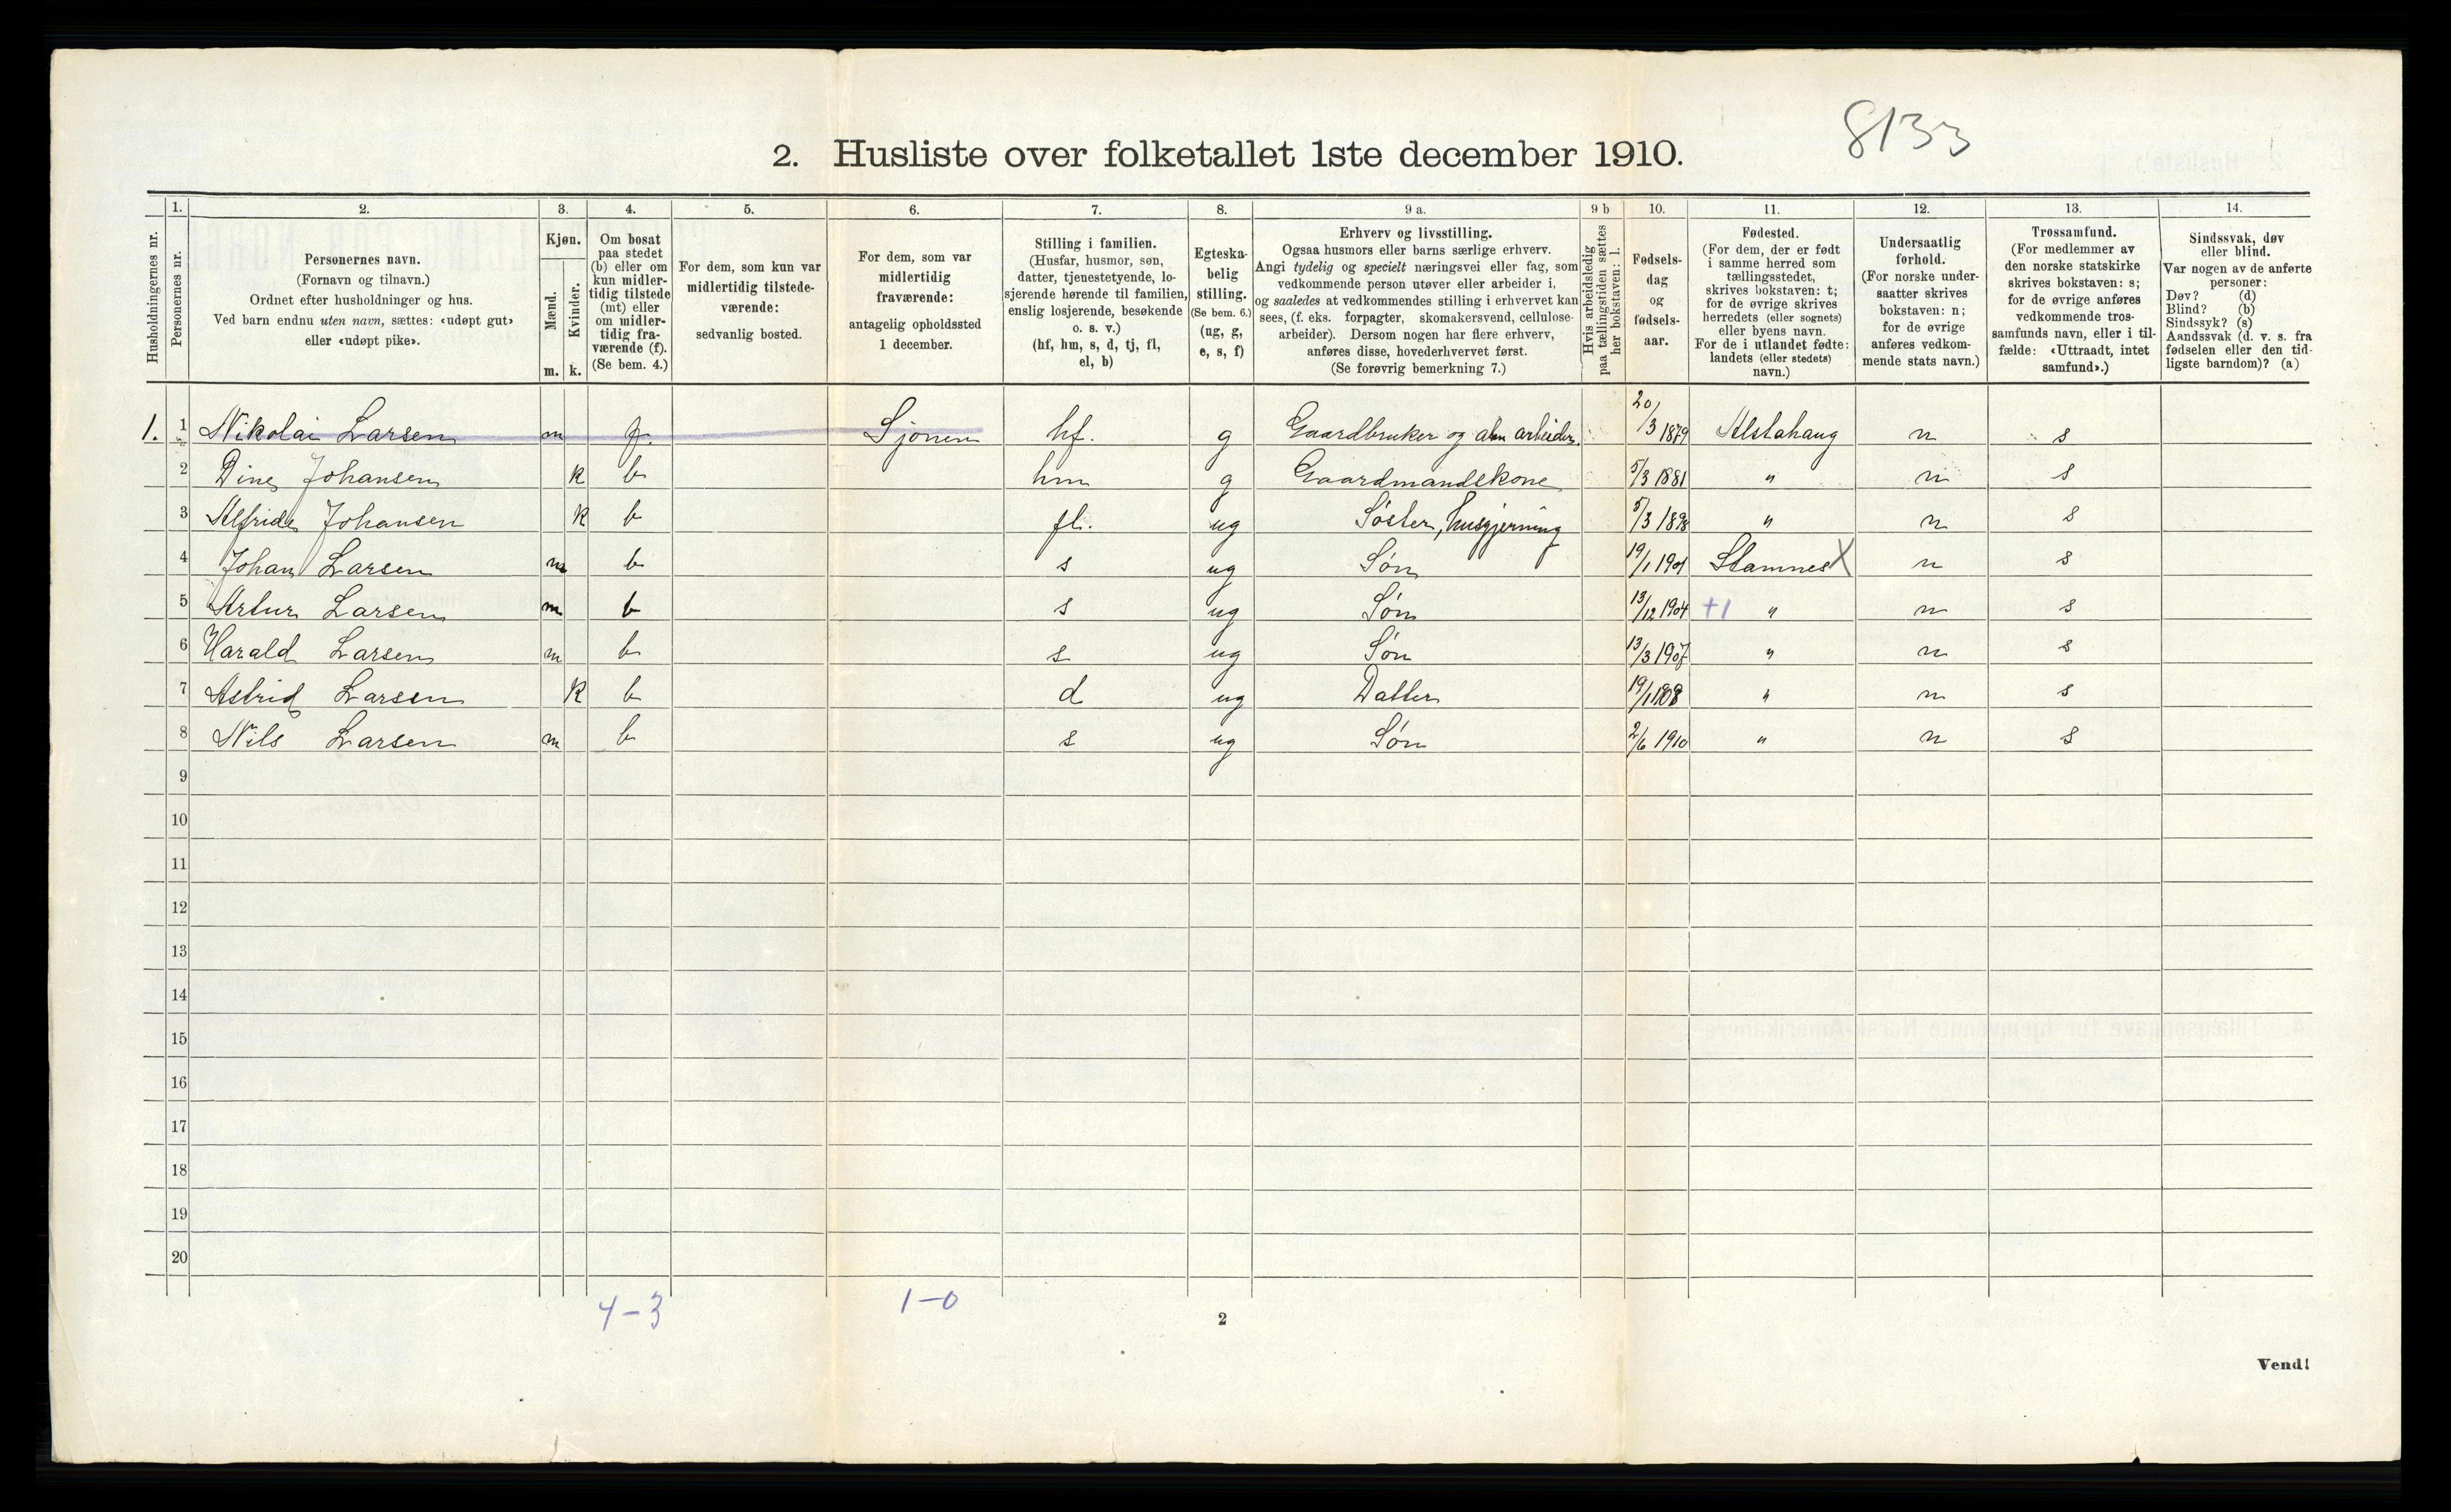 8133
2. Husliste over folketallet 1ste december 1910.
Husholdningernes nr.
1.
Personernes nr.
2.
Personernes navn.
(Fornavn og tilnavn.)
Ordnet efter husholdninger og hus.
Ved barn endnu uten navn, sættes: «udøpt gut»
eller «udøpt pike».
3.
Kjøn.
Mænd.
m.
Kvinder.
k.
4.
Om bosat
paa stedet
(b) eller om
kun midler-
tidig tilstede
(mt) eller
om midler-
tidig fra-
værende (f).
(Se bem. 4.)
5.
For dem, som kun var
midlertidig tilstede-
værende:
sedvanlig bosted.
6.
For dem, som var
midlertidig
fraværende:
antagelig opholdssted
1 december.
7.
Stilling i familien.
(Husfar, husmor, søn,
datter, tjenestetyende, lo-
sjerende hørende til familien,
enslig losjerende, besøkende
o. s. v.)
(hf, hm, s, d, tj, fl,
el, b)
8.
Egteska-
belig
stilling.
(Se bem. 6.)
(ug, g,
e, s, f)
9 a.
Erhverv og livsstilling.
Ogsaa husmors eller barns særlige erhverv.
Angi tydelig og specielt næringsvei eller fag, som
vedkommende person utøver eller arbeider i,
og saaledes at vedkommendes stilling i erhvervet kan
sees, (f. eks. forpagter, skomakersvend, cellulose-
arbeider). Dersom nogen har flere erhverv,
anføres disse, hovederhvervet først.
(Se forøvrig bemerkning 7.)
9 b
Hvis arbeidsledig
paa tællingstiden sættes
her bokstaven: l.
10.
Fødsels-
dag
og
fødsels-
aar.
11.
Fødested.
(For dem, der er født
i samme herred som
tællingsstedet,
skrives bokstaven: t;
for de øvrige skrives
herredets (eller sognets)
eller byens navn.
For de i utlandet fødte:
landets (eller stedets)
navn.)
12.
Undersaatlig
forhold.
(For norske under-
saatter skrives
bokstaven: n;
for de øvrige
anføres vedkom-
mende stats navn.)
13.
Trossamfund.
(For medlemmer av
den norske statskirke
skrives bokstaven: s;
for de øvrige anføres
vedkommende tros-
samfunds navn, eller i til-
fælde: «Uttraadt, intet
samfund».)
14.
Sindssvak, døv
eller blind.
Var nogen av de anførte
personer:
Døv? (d)
Blind? (b)
Sindssyk? (s)
Aandssvak (d. v. s. fra
fødselen eller den tid-
ligste barndom)? (a)
1. 1 Nikolai Larsen m f. Sjonen hf. g Gaardbruker og alm arbeider. 20/3 1879 Alstahaug n s
2 Dine Johansen k b hm g Gaardmandskone 5/3 1881 " n s
3 Alfride Johansen k b fl. ug Søster, husgjerning 5/3 1898 " n s
4 Johan Larsen m b s ug Søn 19/1 1901 Stamnes X n s
5 Artur Larsen m b s ug Søn 13/12 1904 +1 " n s
6 Harald Larsen m b s ug Søn 13/3 1907 " n s
7 Astrid Larsen k b d ug Datter 19/1 1908 " n s
8 Nils Larsen m b s ug Søn 2/6 1910 " n s
9
10
11
12
13
14
15
16
17
18
19
20
4-3 1-0
2
Vend!